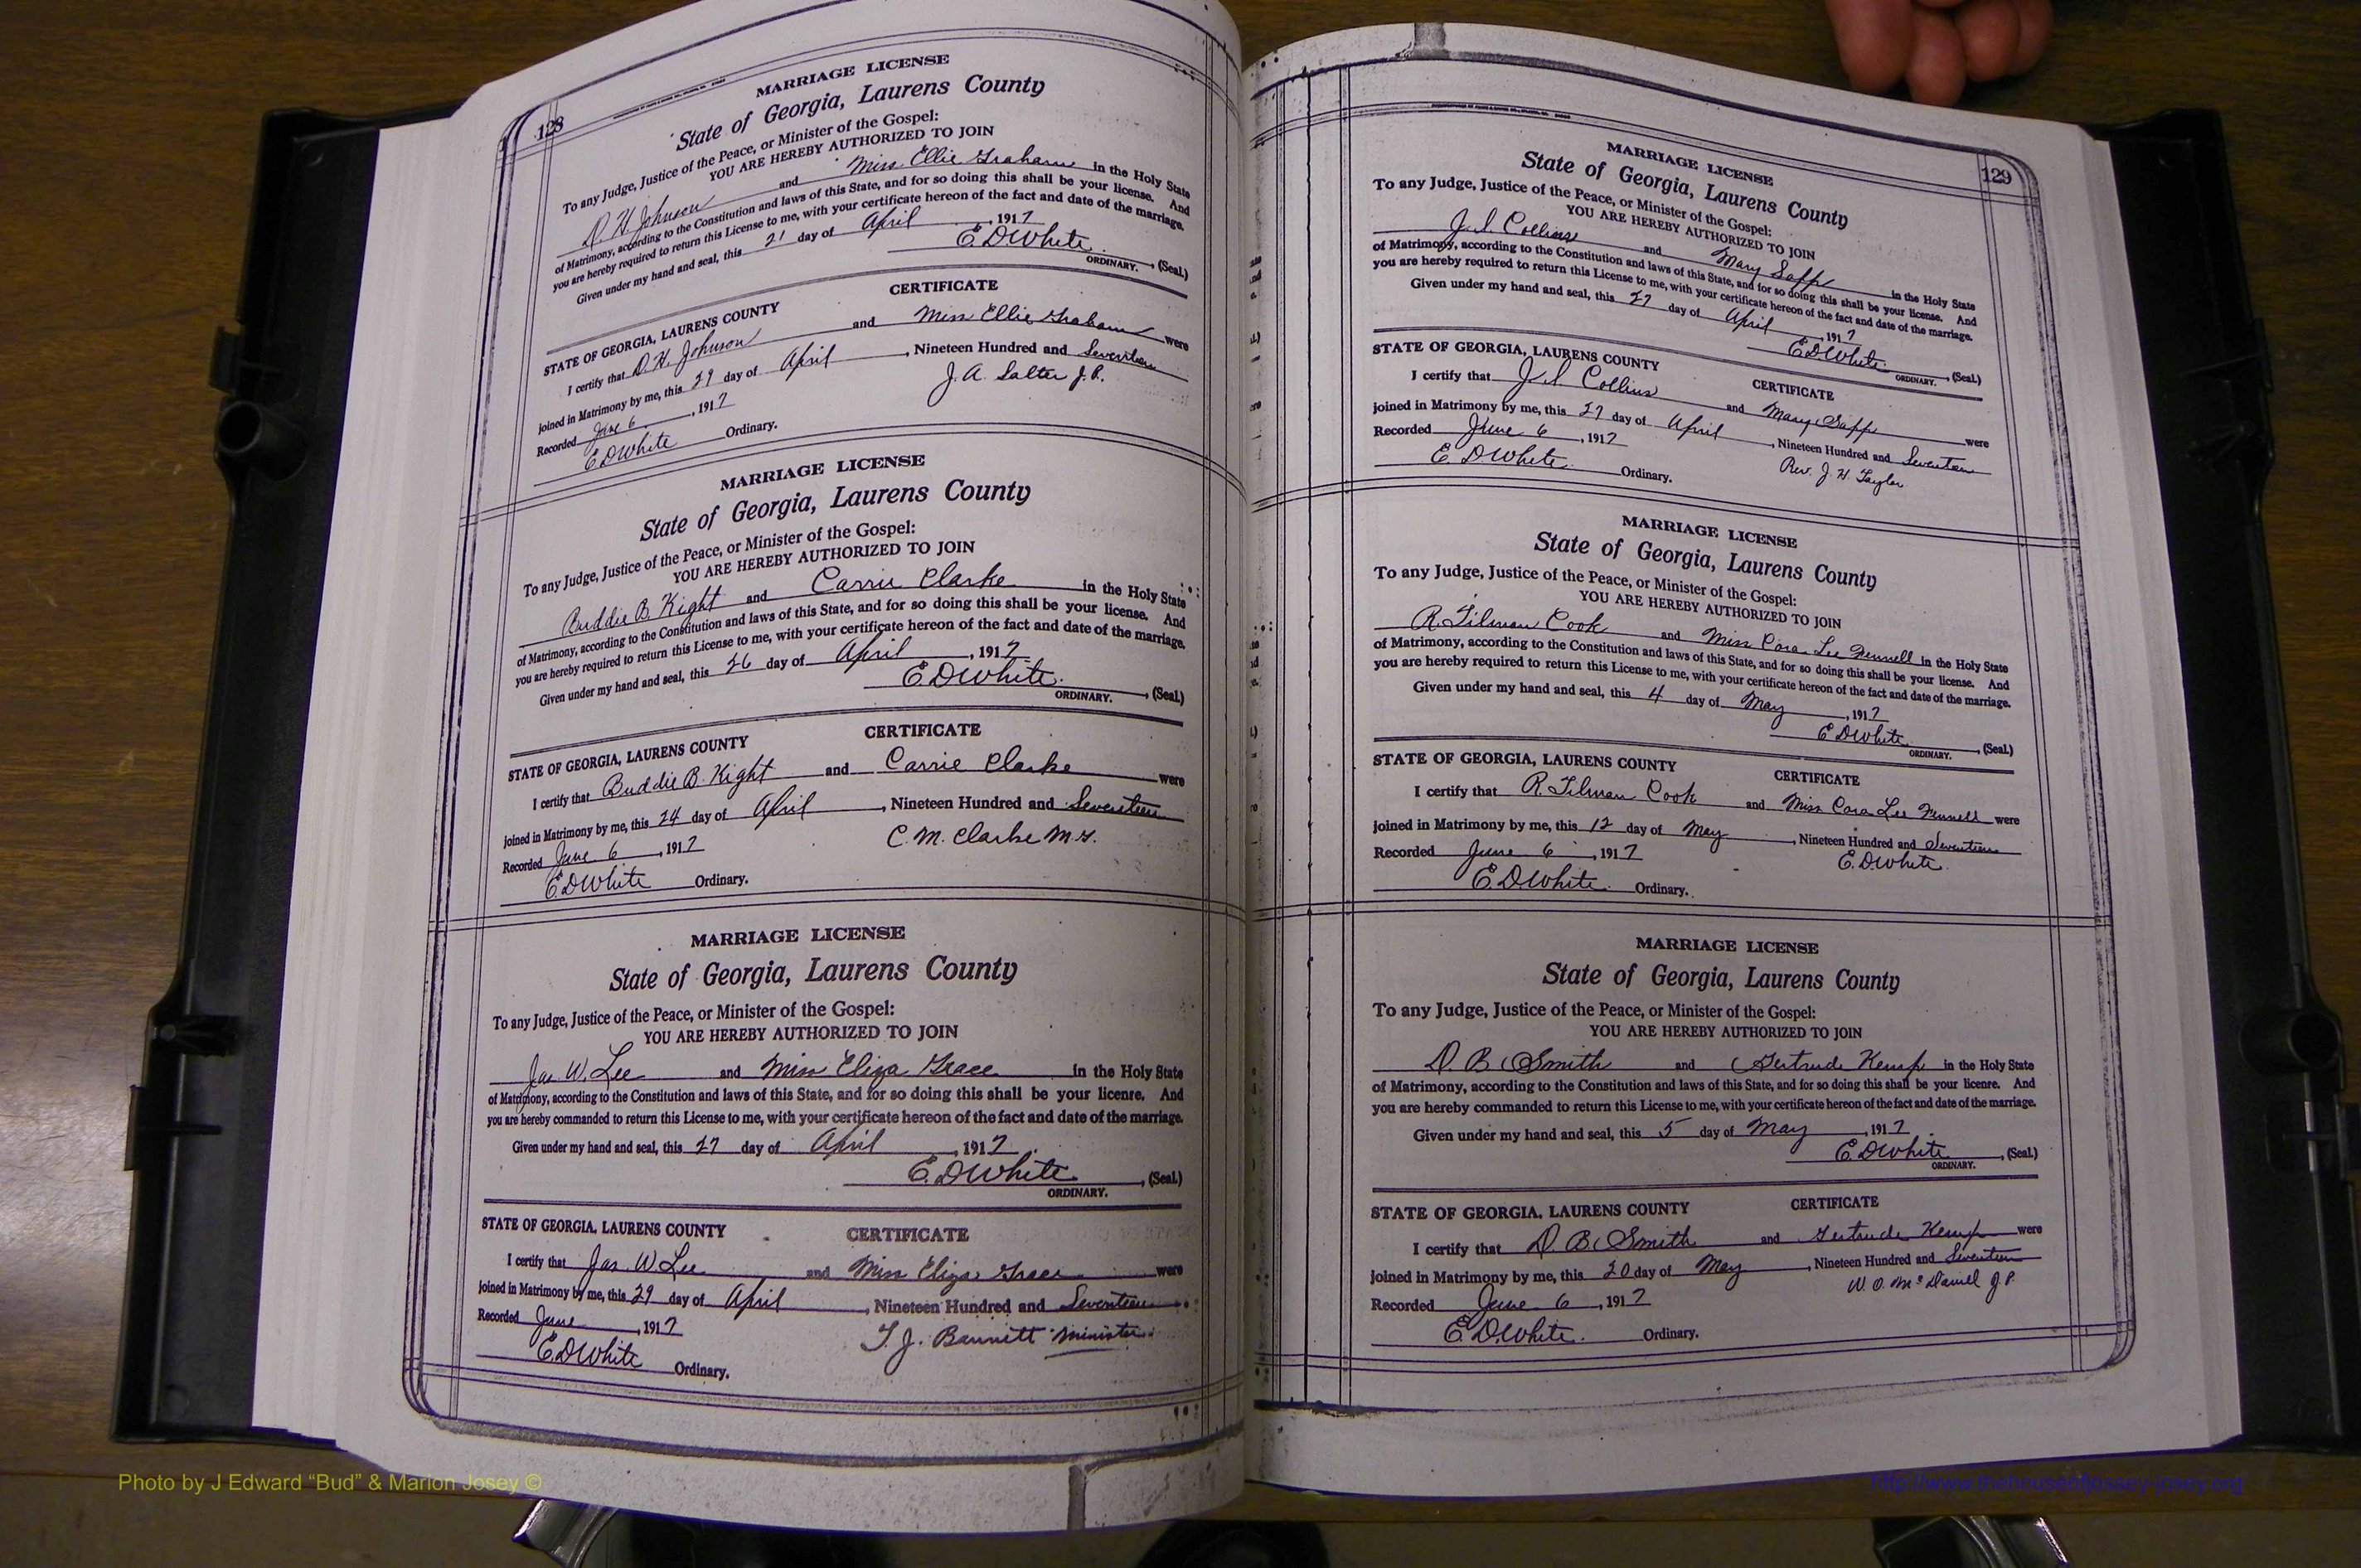 128
MARRIAGE LICENSE
State of Georgia, Laurens County
To any Judge, Justice of the Peace, or Minister of the Gospel:
YOU ARE HEREBY AUTHORIZED TO JOIN
D. H. Johnson and Miss Ellie Graham in the Holy State
of Matrimony, according to the Constitution and laws of this State, and for so doing this shall be your license. And
you are hereby required to return this License to me, with your certificate hereon of the fact and date of the marriage.
Given under my hand and seal, this 21 day of April, 1917
E.D.White (Seal.)
ORDINARY.
CERTIFICATE
STATE OF GEORGIA, LAURENS COUNTY
I certify that D. H. Johnson and Miss Ellie Graham were
joined in Matrimony by me, this 29 day of April, Nineteen Hundred and Seventeen
Recorded June 6, 1917 J. A. Salter J.P.
E.D.White Ordinary.
MARRIAGE LICENSE
State of Georgia, Laurens County
To any Judge, Justice of the Peace, or Minister of the Gospel:
YOU ARE HEREBY AUTHORIZED TO JOIN
Buddie B. Kight and Carrie Clarke in the Holy State
of Matrimony, according to the Constitution and laws of this State, and for so doing this shall be your license. And
you are hereby required to return this License to me, with your certificate hereon of the fact and date of the marriage.
Given under my hand and seal, this 26 day of April, 1917
E.D.White. (Seal.)
ORDINARY.
CERTIFICATE
STATE OF GEORGIA, LAURENS COUNTY
I certify that Buddie B. Kight and Carrie Clarke were
joined in Matrimony by me, this 24 day of April, Nineteen Hundred and Seventeen
Recorded June 6, 1917 C. M. Clarke M.G.
E.D.White Ordinary.
MARRIAGE LICENSE
State of Georgia, Laurens County
To any Judge, Justice of the Peace, or Minister of the Gospel:
YOU ARE HEREBY AUTHORIZED TO JOIN
Jas W. Lee and Miss Eliza Grace in the Holy State
of Matrimony, according to the Constitution and laws of this State, and for so doing this shall be your licenre. And
you are hereby commanded to return this License to me, with your certificate hereon of the fact and date of the marriage.
Given under my hand and seal, this 27 day of April, 1917
E.D.White. (Seal.)
ORDINARY.
STATE OF GEORGIA, LAURENS COUNTY CERTIFICATE
I certify that Jas. W. Lee and Miss Eliza Grace were
joined in Matrimony by me, this 29 day of April, Nineteen Hundred and Seventeen
Recorded June, 1917 T. J. Barnett Minister.
E.D.White Ordinary.
129
MARRIAGE LICENSE
State of Georgia, Laurens County
To any Judge, Justice of the Peace, or Minister of the Gospel:
YOU ARE HEREBY AUTHORIZED TO JOIN
Collins and Mary Sapp in the Holy State
of Matrimony, according to the Constitution and laws of this State, and for so doing this shall be your license. And
you are hereby required to return this License to me, with your certificate hereon of the fact and date of the marriage.
Given under my hand and seal, this 27 day of April, 1917
E.D.White. (Seal.)
ORDINARY.
STATE OF GEORGIA, LAURENS COUNTY CERTIFICATE
I certify that Collins and Mary Sapp were
joined in Matrimony by me, this 27 day of April, Nineteen Hundred and Seventeen
Recorded June 6, 1917 Rev. J. H. Taylor
E.D.White. Ordinary.
MARRIAGE LICENSE
State of Georgia, Laurens County
To any Judge, Justice of the Peace, or Minister of the Gospel:
YOU ARE HEREBY AUTHORIZED TO JOIN
R. Tilman Cook and Miss Cora Lee in the Holy State
of Matrimony, according to the Constitution and laws of this State, and for so doing this shall be your license. And
you are hereby required to return this License to me, with your certificate hereon of the fact and date of the marriage.
Given under my hand and seal, this 4 day of May, 1917
E.D.White (Seal.)
ORDINARY.
STATE OF GEORGIA, LAURENS COUNTY CERTIFICATE
I certify that R. Tilman Cook and Miss Cora Lee were
joined in Matrimony by me, this 12 day of May, Nineteen Hundred and Seventeen
Recorded June 6, 1917 E.D.White.
E.D.White. Ordinary.
MARRIAGE LICENSE
State of Georgia, Laurens County
To any Judge, Justice of the Peace, or Minister of the Gospel:
YOU ARE HEREBY AUTHORIZED TO JOIN
D. B. Smith and Gertrude Kemp in the Holy State
of Matrimony, according to the Constitution and laws of this State, and for so doing this shall be your licenre. And
you are hereby commanded to return this License to me, with your certificate hereon of the fact and date of the marriage.
Given under my hand and seal, this 5 day of May, 1917
E.D.White (Seal.)
ORDINARY.
STATE OF GEORGIA, LAURENS COUNTY CERTIFICATE
I certify that D. B. Smith and Gertrude Kemp were
joined in Matrimony by me, this 20 day of May, Nineteen Hundred and Seventeen
Recorded June 6, 1917 W. O. McDaniel J.P.
E.D.White. Ordinary.
Photo by J Edward “Bud” & Marion Josey ©
http://www.thehouseofjossey-josey.org